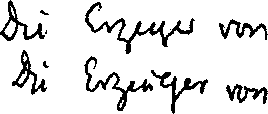 Die Erzeuger von
Die Erzeuger von